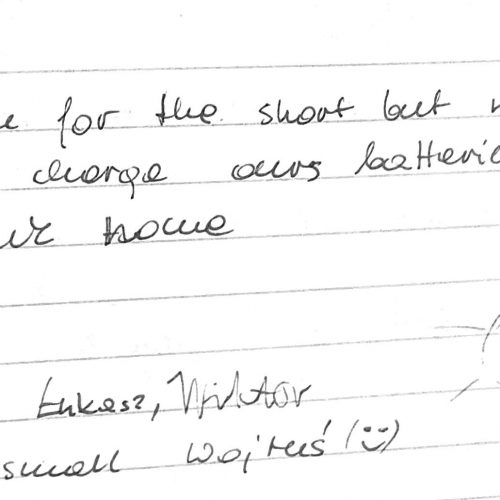 for the short but
charge ours batterie
home
Łukasz, Wiktor
small Wojtuś (:))